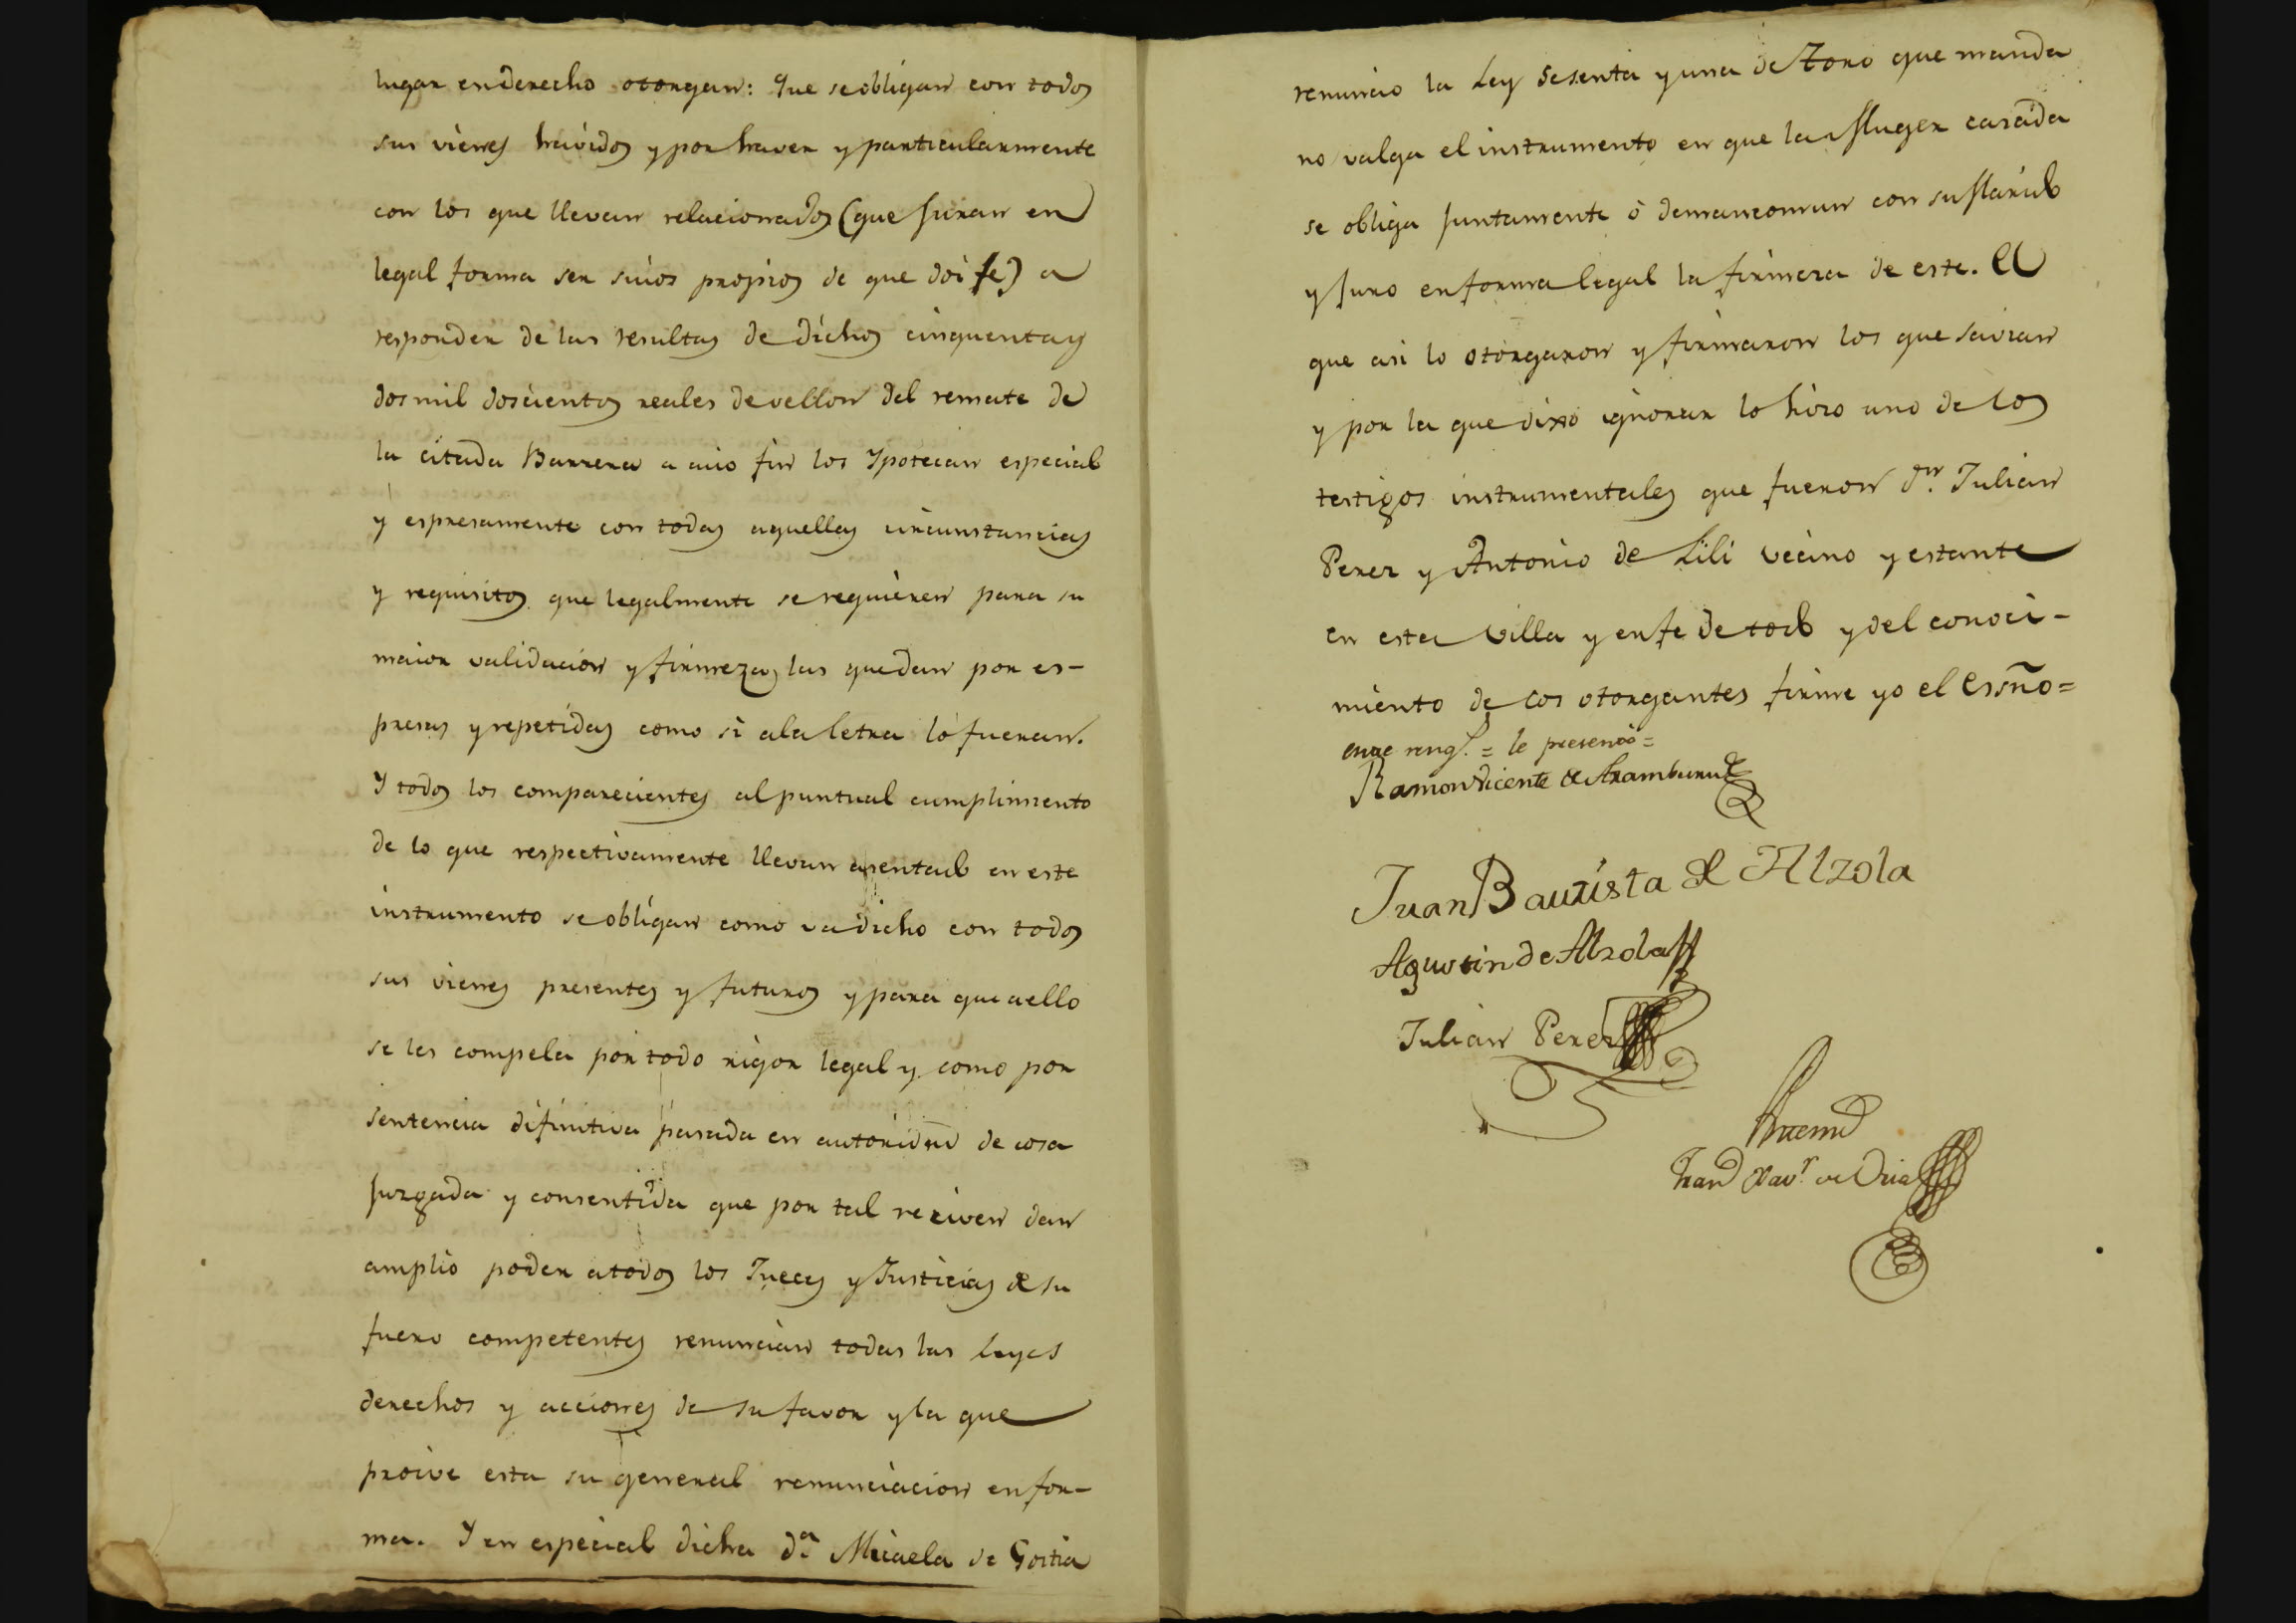 lugar enderecho otorgan: Que seobligan con todos
sus vienes havidos y por haver y particularmente
con los que llevan relacionados (que Juran en
legal forma ser suios propios de que doi fe) a
responder de las resultas de dichos cinquenta y
dos mil doscientos reales de vellon del remate de
la citada Barrera a cuio fin los Ypotecan especial
y espresamente con todas aquellas circunstancias
y requisitos que legalmente se requieren para su
maior validacion y firmeza, las quedan por es-
presas y repetidas como si ala letra lo fueran.
Y todos los comparecientes al puntual cumplimiento
de lo que respectivamente llevan asentado en este
instrumento se obligan como va dicho con todos
sus vienes presentes y futuros y para que aello
se les compela por todo rigor legal y como por
sentencia difinitiva pasada en autoridad de cosa
Juzgada y consentida que por tal reciven dan
amplio poder atodos los Jueces y Justicias de su
fuero competentes renuncian todas las Leyes
derechos y acciones de su favor y la que
proive esta su general renunciacion enfor-
ma. Y en especial dicha d.ª Micaela de Goitia
renuncio la Ley sesenta y una de Toro que manda
no valga el instrumento en que la Muger casada
se obliga Juntamente ò demancomun con su Marido
y Juro enforma legal la firmeza de este. El
que asi lo otorgaron y firmaron los que savian
y por la que dixo ignorar lo hizo uno de los
testigos instrumentales que fueron d.n Julian
Perez y Antonio de Lili vecino y estante
en esta Villa y enfe de todo y del conoci-
miento de los otorgantes firme yo el Essño=
entre rengl. = le presenció =
Ramon Vicente de Aramburu
Juan Bautista de Alzola
Agustin de Alzola
Julian Perez
Antemi
Fran.co Xav.r de Oria